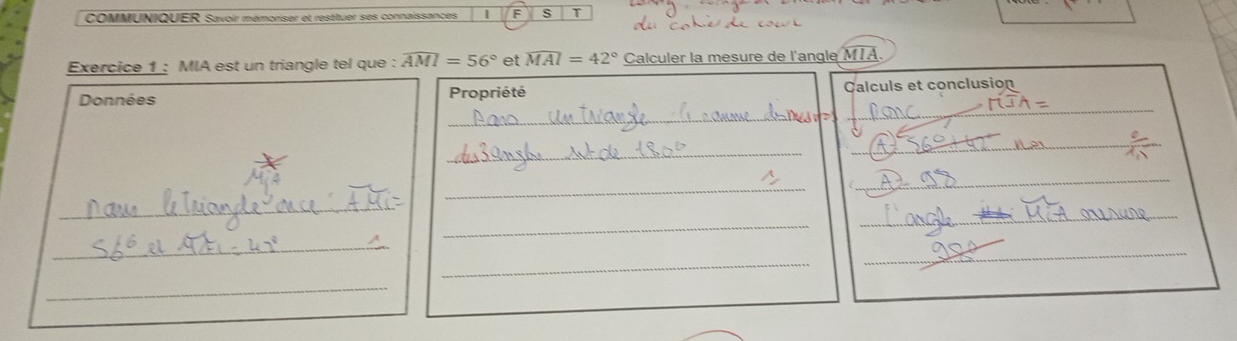 COMMUNIQUER Savoir mémoriser et restituer ses connaissances I F S T
du cahier de cours
Exercice 1 : MIA est un triangle tel que : AMI = 56° et MAI = 42° Calculer la mesure de l'angle MIA.
Données
MiA
Dans le triangle avec : AMi =
56° et = 42°
1
Propriété
Dans un triangle la somme des mesures
des 3 angles est de 180°
1
Calculs et conclusion
Donc MIA =
A = 56° + 42 non
A = 98
L'angle MiA mesure
98°